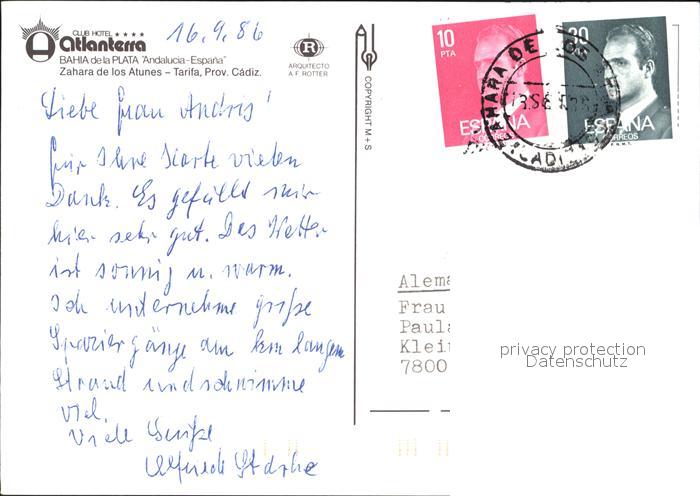 CLUB HOTEL ★★★★
atlanterra
BAHIA de la PLATA "Andalucia-España"
Zahara de los Atunes – Tarifa, Prov. Cádiz.
16.9.86
R
ARQUITECTO
A.F. ROTTER
COPYRIGHT M+S
10
PTA
ESPAÑA
CORREOS
30
ESPAÑA
CORREOS
ZAHARA DE LOS
Liebe Frau Andris!
für Ihre Karte vielen
Dank. Es gefällt mir
hier sehr gut. Das Wetter
ist sonnig u. warm.
Ich unternehme große
Spaziergänge am km langen
Strand und schwimme
viel.
Viele Grüße
Alema
Frau
Paula
Klein
7800
privacy protection
Datenschutz